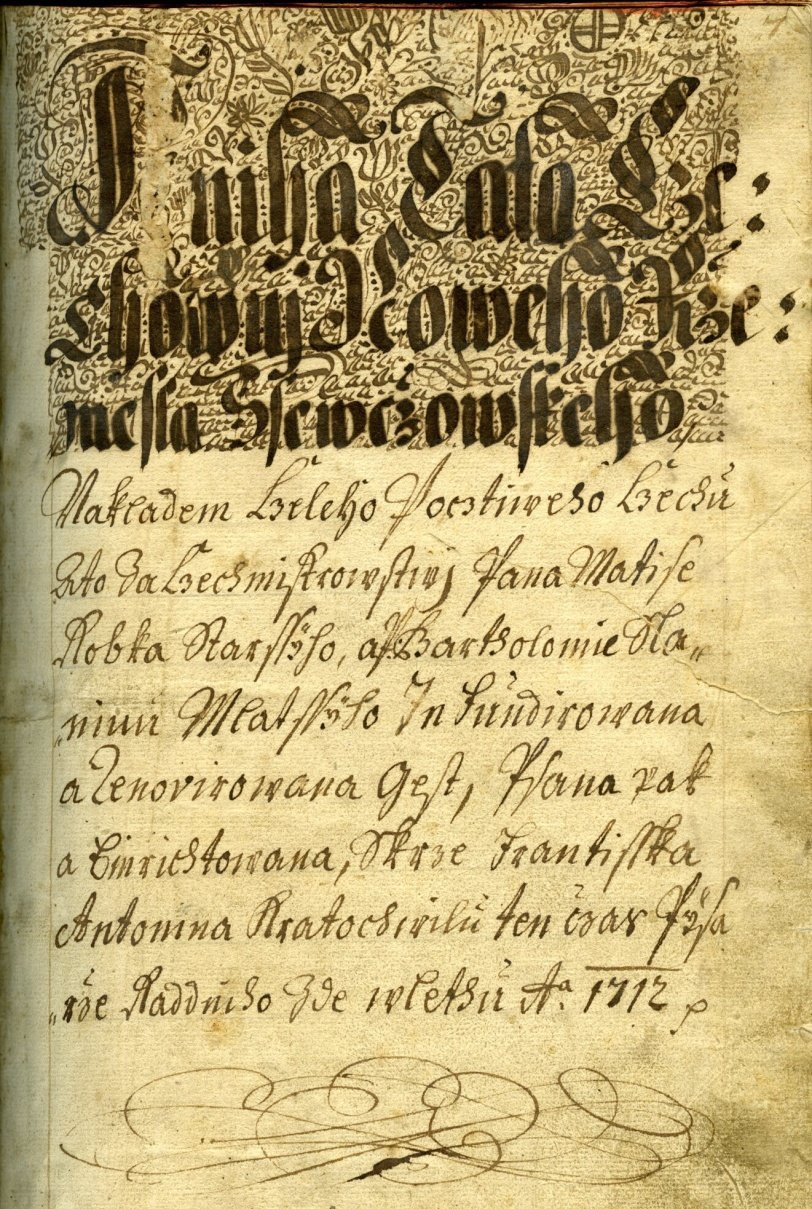 Kniha Tato Cze:
chownj Noweho Rze:
mesla Ssewczowskeho
Nakladem Czeleho Pocztiweho Czechu
a to Za Czechmistrowstwj Pana Matise
Robka Starssÿho, a Bartholomie Sla„
„ninu Mlatssÿho In Fundirowana
a Renovirowana Gest, Psana pak
a Einrichtowana, Skrze Frantisska
Antonina Kratochwilu ten czas Pÿsa
„rze Raddniho Zde w Lethu Aº 1712